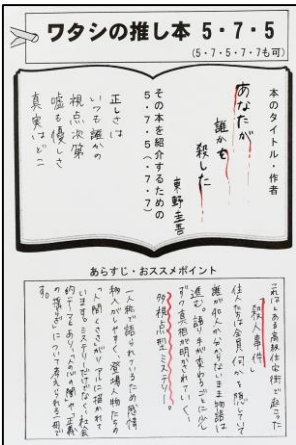 ワタシの推し本 5・7・5
(5・7・5・7・7も可)
本のタイトル・作者
あなたが
誰かを
殺した
東野圭吾
その本を紹介するための
5・7・5(・7・7)
正しさは
いつも誰かの
視点次第
嘘も優しさ
真実はどこ
あらすじ・おススメポイント
これはある高級住宅街で起こった
「殺人事件」
住人たちは全員何かを隠していて
誰が犯人か分からないまま物語は
進む。語り手が変わるごとに少し
ずつ真相が明かされていく、
多視点型ミステリー。
一人称で語られているため感情
移入がしやすく、登場人物たちの
「人間くささ」がリアルに描かれて
います。ミステリーとしてだけでなく、社会
的テーマもあり、「人の心の闇や、正義
の揺らぎ」について考えられる一冊で
す。